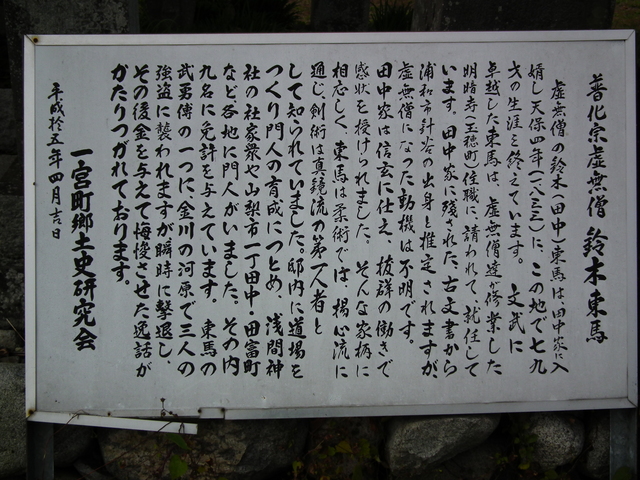 普化宗虚無僧 鈴木東馬
虚無僧の鈴木(田中)東馬は、田中家に入
婿し天保四年(一八三三)に、この地で七九
才の生涯を終えています。 文武に
卓越した東馬は、虚無僧達が修業した
明暗寺(玉穂町)住職に、請われて、就任して
います。田中家に残された、古文書から
浦和市針谷の出身と推定されますが、
虚無僧になった動機は不明です。
田中家は信玄に仕え、抜群の働きで
感状を授けられました。そんな家柄に
相応しく、東馬は柔術では、楊心流に
通じ剣術は真鏡流の第一人者と
して知られていました。邸内に道場を
つくり門人の育成につとめ、浅間神
社の社家衆や山梨市一丁田中・田富町
など各地に門人がいました。その内
九名に免許を与えています。東馬の
武勇傳の一つに、金川の河原で三人の
強盗に襲われますが瞬時に撃退し、
その後金を与えて悔悛させた逸話が
かたりつがれております。
一宮町郷土史研究会
平成拾五年四月吉日